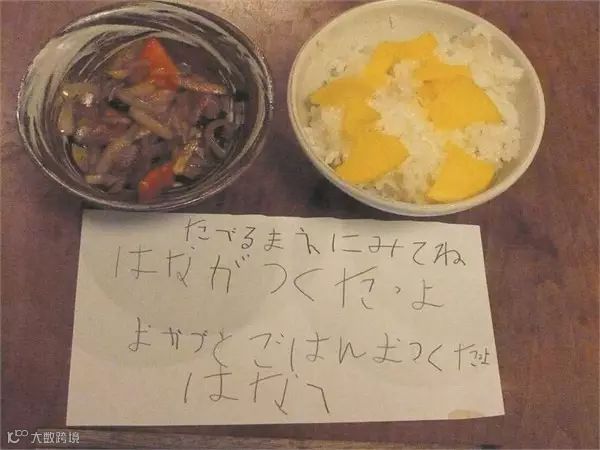 たべるまえにみてね
はながつくたっよ
おかづとごはんおつくたっよ
はなへ
大数跨境